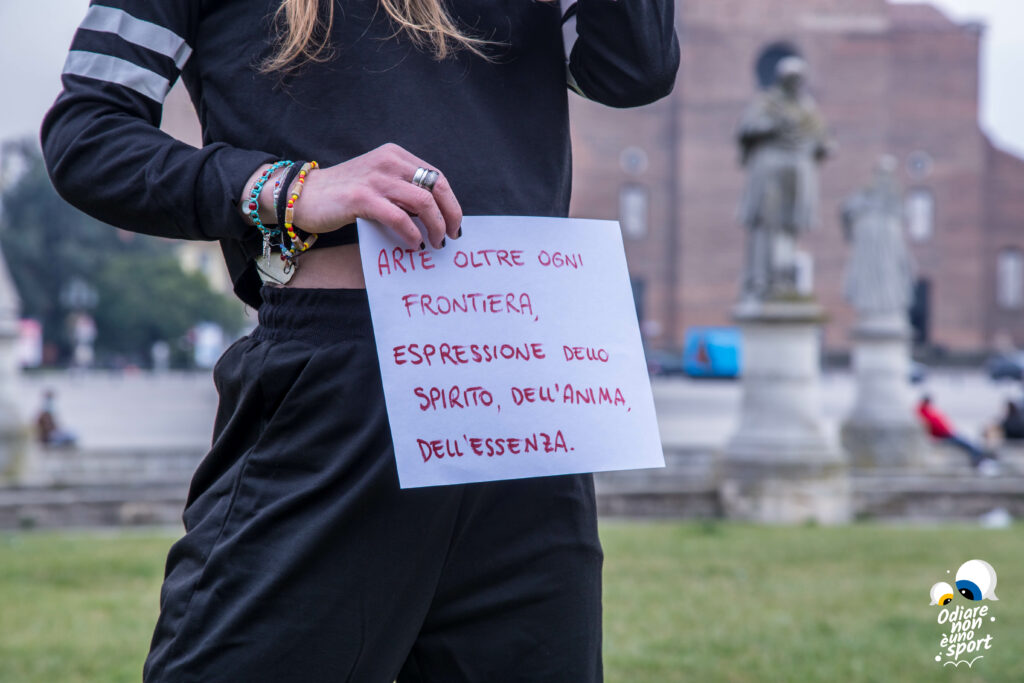 ARTE OLTRE OGNI
FRONTIERA,
ESPRESSIONE DELLO
SPIRITO, DELL'ANIMA,
DELL'ESSENZA.
Odiare
non
è uno
sport